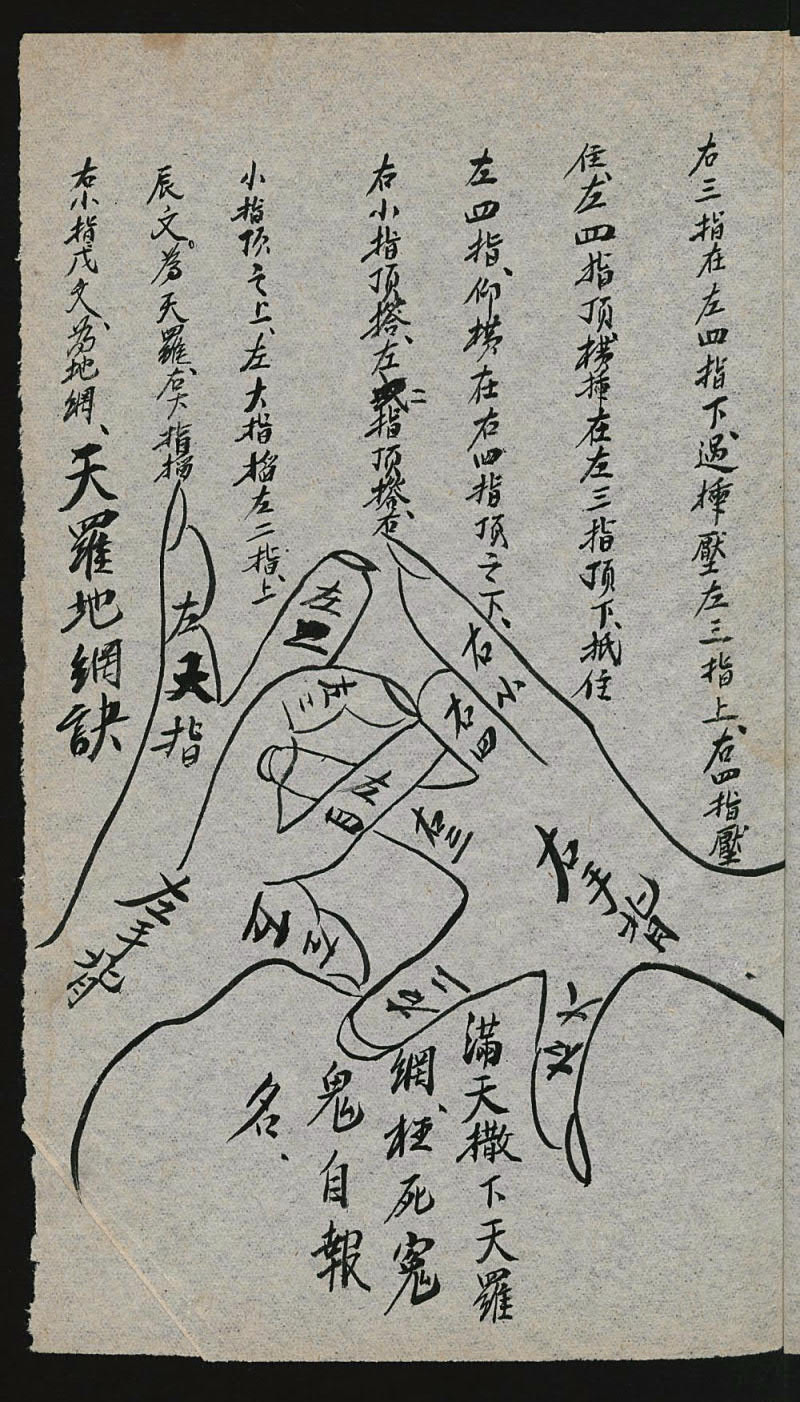 右三指在左四指下過揷壓左三指上、右四指壓
住、左四指頂、橫揷在左三指頂下、抵住
左四指、仰橫在右四指頂之下、
右小指頂搭、左二指頂搭、右
小指頂之上、左大指搯左二指、上
辰文。為天羅、右大指搯
右小指戌文、為地網、
天羅地網訣
左大指
左二
左三
左四
右小
右四
右三
左手背
右手背
左小
右二
右大
滿天撒下天羅
網、枉死冤
鬼自報
名、